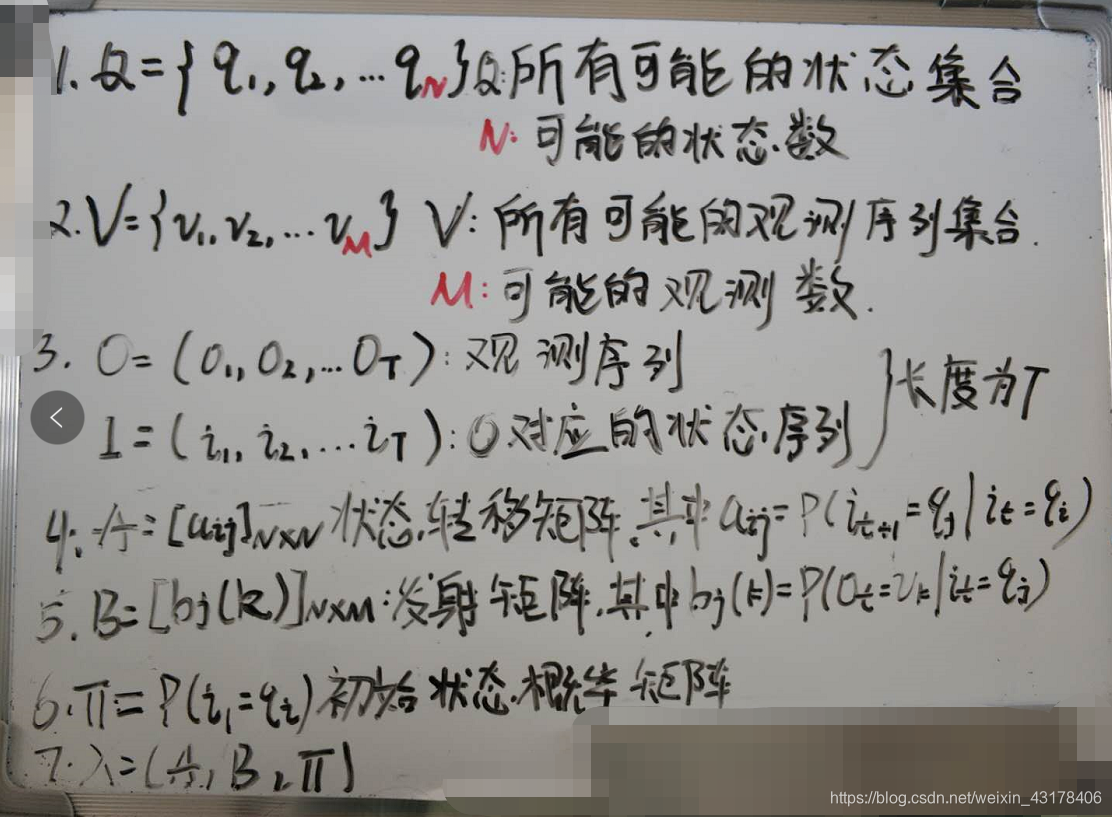 1. Q={q₁,q₂,...q_N} Q:所有可能的状态集合
N:可能的状态数
2. V={v₁,v₂,...v_M} V:所有可能的观测序列集合.
M:可能的观测数.
3. O=(O₁,O₂,...O_T):观测序列
I=(i₁,i₂,...i_T):O对应的状态序列
}长度为T
4. A=[a_ij]_N×N 状态转移矩阵.其中a_ij=P(i_t+1=q_j|i_t=q_i)
5. B=[b_j(k)]_N×M:发射矩阵.其中b_j(k)=P(O_t=v_k|i_t=q_j)
6. π=P(i₁=q_i)初始状态概率矩阵
7. λ=(A,B,π)
https://blog.csdn.net/weixin_43178406